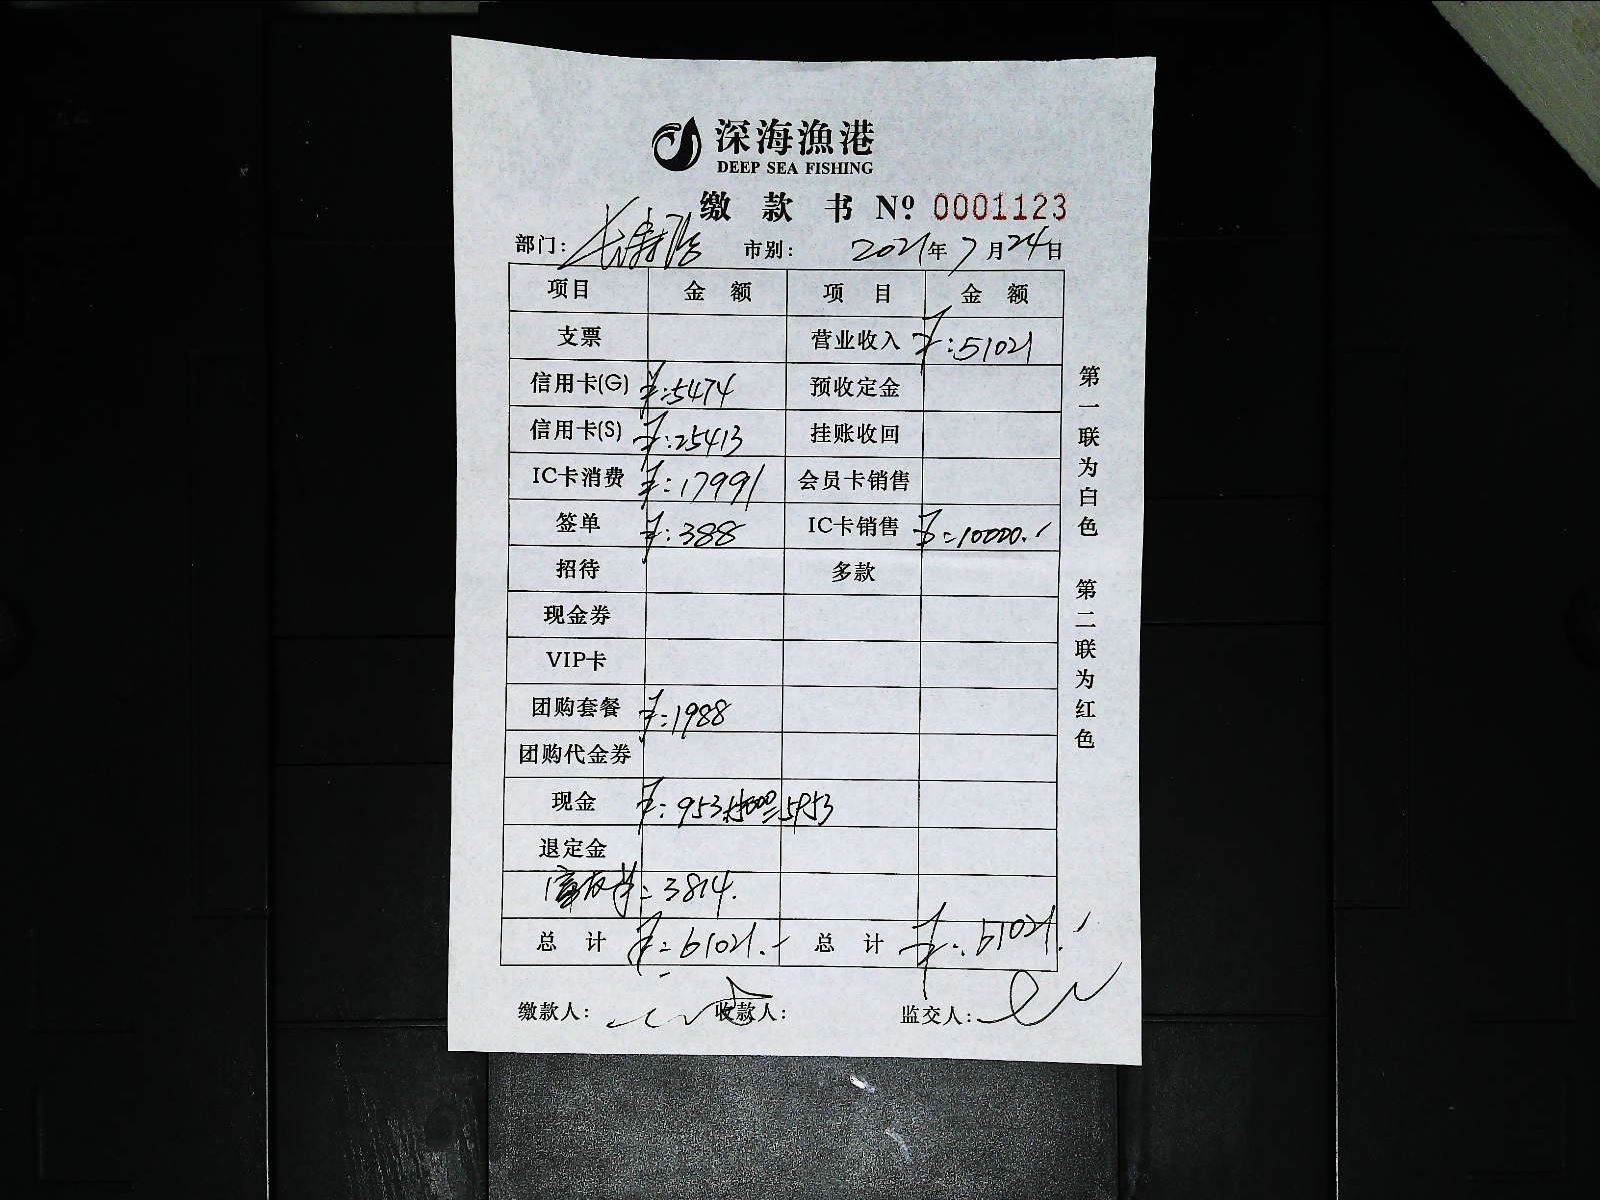 深海漁港
DEEP SEA FISHING
缴款书 Nº 0001123
部门: 长寿路 市别: 2021年7月24日
项目 金额 项目 金额
支票 营业收入 ¥:51021
信用卡(G) ¥:5474 预收定金
信用卡(S) ¥:25413 挂账收回
IC卡消费 ¥:17991 会员卡销售
签单 ¥:388 IC卡销售 ¥:10000.
招待 多款
现金券
VIP卡
团购套餐 ¥:1988
团购代金券
现金 ¥:953+5000=5953
退定金
3814.
总计 ¥:61021. 总计 ¥:61021.
缴款人: 收款人: 监交人:
第一联为白色 第二联为红色